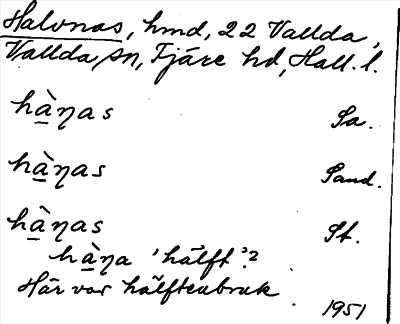 Halvnas, hmd, 22 Vallda,
Vallda sn, Fjäre hd, Hall. l.
hà̱ŋas Sa.
hà̱ŋas Sand.
hà̱ŋas St.
hà̱ŋa 'hälft'?
Här var hälftenbruk
1951